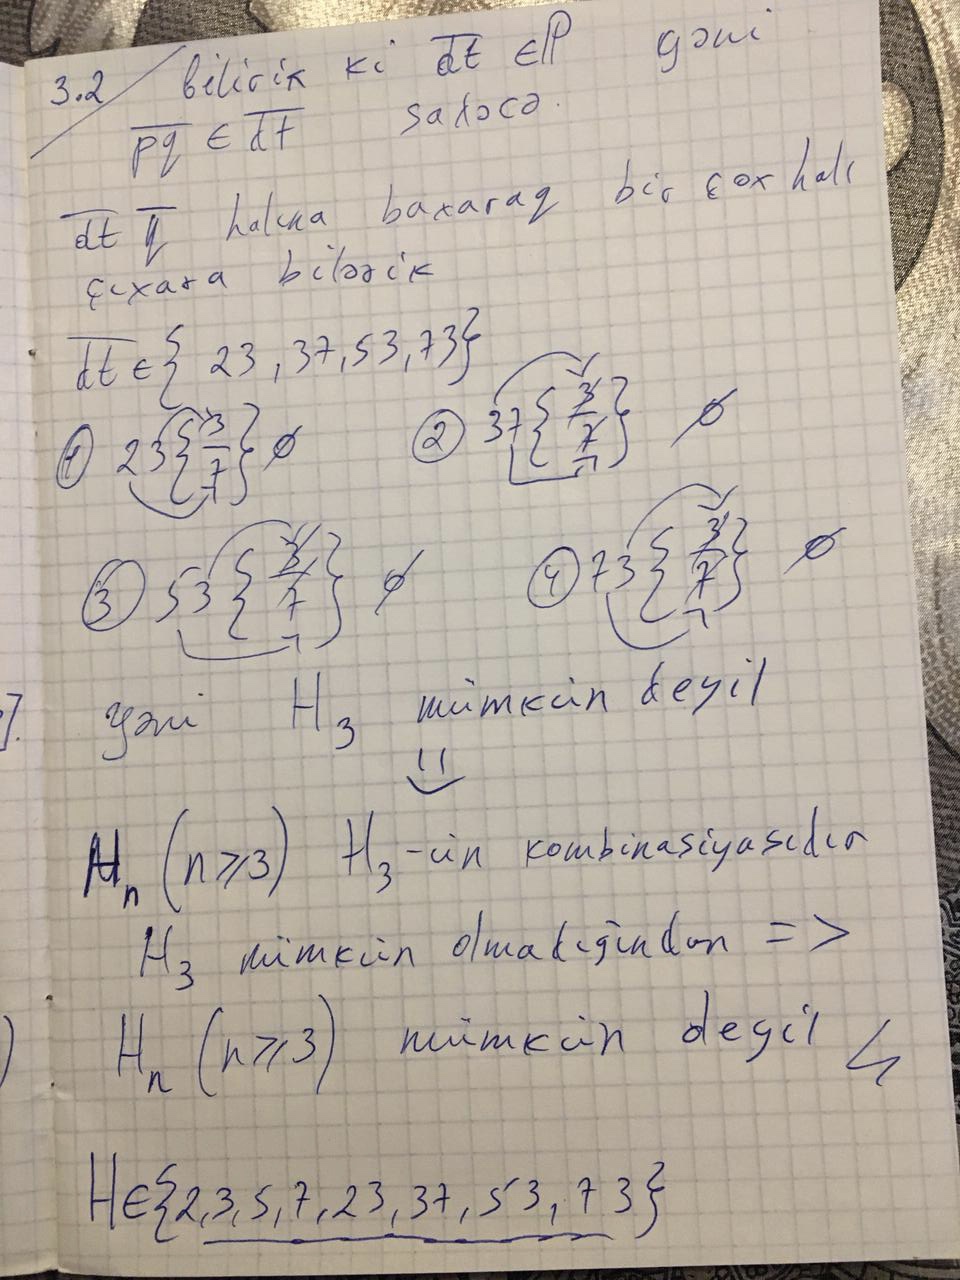 3.2 bilirik ki dt ∈ ℙ yəni
pq ∈ dt sadəcə.
dt q halına baxaraq bir çox halı
çıxara bilərik
dt ∈ { 23, 37, 53, 73}
① 23 { 3/7 } ∅ ② 37 { 3/7 } ∅
③ 53 { 3/7 } ∅ ④ 73 { 3/7 } ∅
yəni H₃ mümkün deyil
Hₙ (n⩾3) H₃-ün kombinasiyasıdır
H₃ mümkün olmadığından =>
Hₙ (n⩾3) mümkün deyil
H∈{2,3,5,7,23,37,53,73}